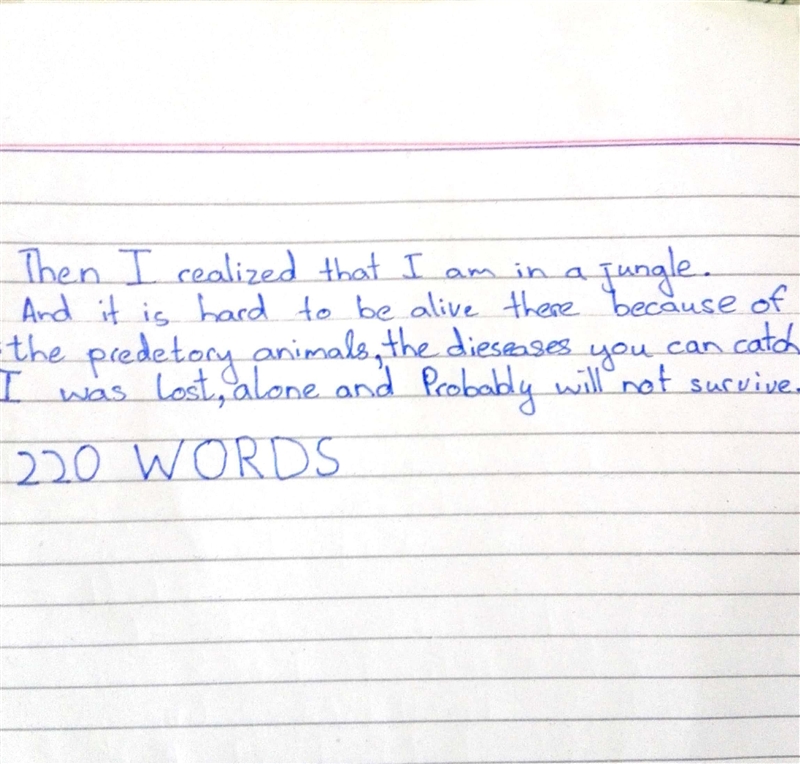 Then I realized that I am in a jungle.
And it is hard to be alive there because of
the predetory animals, the dieseases you can catch
I was lost, alone and Probably will not survive.
220 WORDS